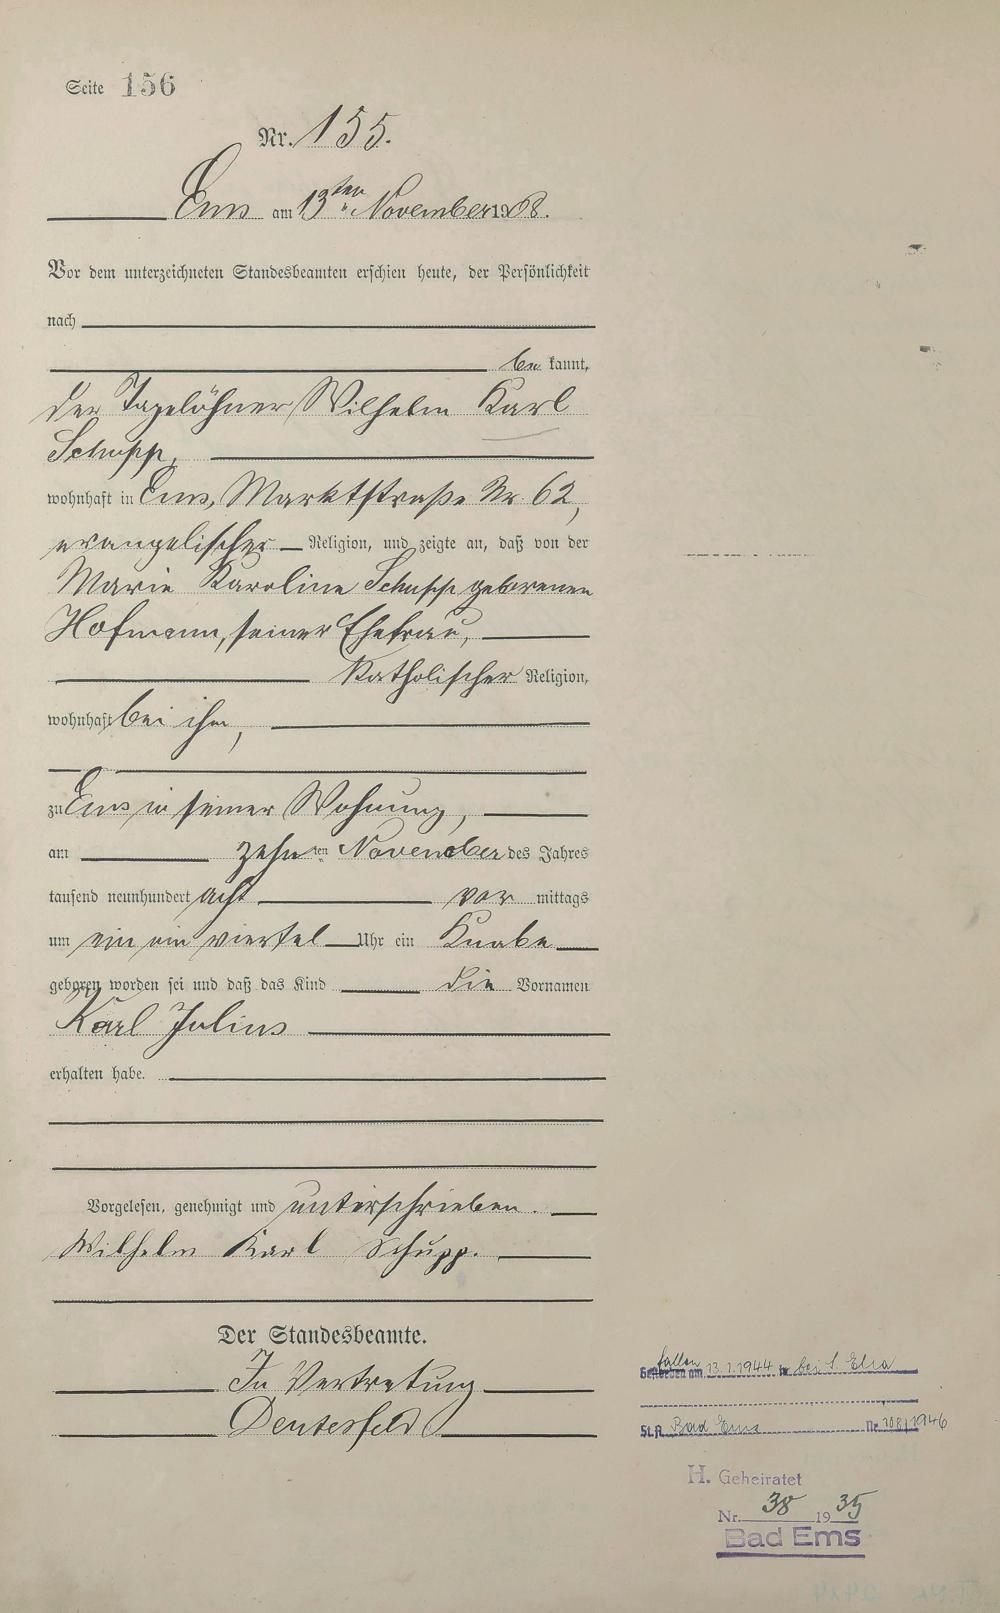 Seite 156
Nr. 155.
Ems am 13ten November 1908.
Vor dem unterzeichneten Standesbeamten erschien heute, der Persönlichkeit
nach
be kannt,
der Tagelöhner Wilhelm Karl
Schupp,
wohnhaft in Ems, Marktstraße Nr. 62,
evangelischer Religion, und zeigte an, daß von der
Marie Karoline Schupp geborenen
Hofmann, seiner Ehefrau,
katholischer Religion,
wohnhaft bei ihm,
zu Ems in seiner Wohnung,
am zehn ten November des Jahres
tausend neunhundert acht vor mittags
um ein ein viertel Uhr ein Knabe
geboren worden sei und daß das Kind die Vornamen
Karl Julius
erhalten habe.
Vorgelesen, genehmigt und unterschrieben.
Wilhelm Karl Schupp.
Der Standesbeamte.
In Vertretung
fallen
Gestorben am 13.1.1944 in bei S. Elia
St.A. Bad Ems Nr. 108/1946
H. Geheiratet
Nr. 38 1935
Bad Ems